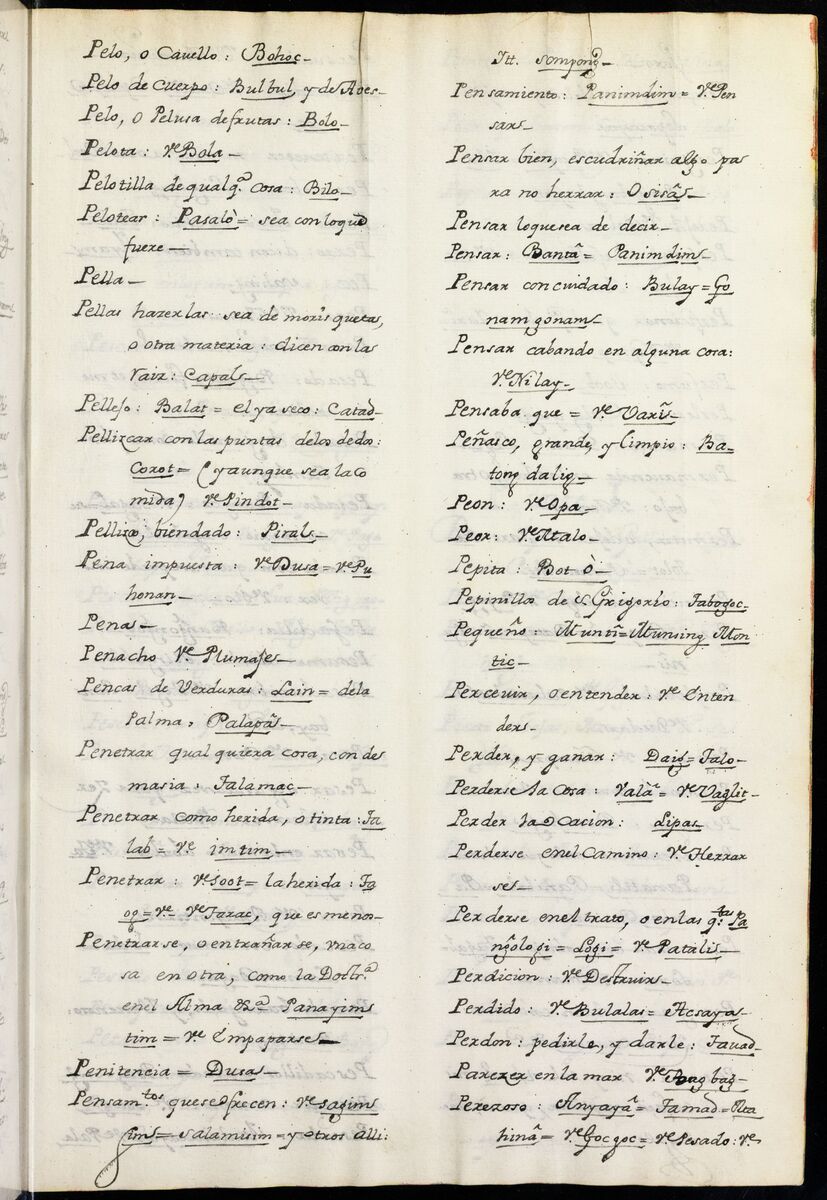 Pelo, o Cavello: Bohoc_
Pelo de Cuerpo: Bulbul, y de Aves_
Pelo, o Pelusa de frutas: Bolo_
Pelota: Vᵉ Bola_
Pelotilla de qualqᵃ Cosa: Bilo_
Pelotear: Pasalò = sea con loque
fuere_
Pella_
Pellas hazerlas sea de morisquetas,
o otra materia: dicen con la
raiz: Capals_
Pellejo: Balat = el ya seco: Catad_
Pellizcar con las puntas delos dedos:
Corot = (y aunque sea la co
mida) Vᵉ Pindot_
Pellizco, biendado: Pirals_
Pena impuesta: Vᵉ Dusa = Vᵉ Pu
honan_
Penas_
Penacho Vᵉ Plumajes_
Pencas de Verduras: Lain = dela
Palma, Palapâs_
Penetrar qual quiera cosa, con de
masia: Talamac_
Penetrar como herida, o tinta: Ta
lab = Vᵉ imtim_
Penetrar: Vᵉ Soot = la herida: Ta
og = Vᵉ Vᵉ Tarac, que es menos_
Penetrarse, o entrañarse, vna co
sa en otra, como la Doctrᵃ
en el Alma &ᵃ Panayims
tim = Vᵉ Empaparse_
Penitencia = Dusas_
Pensamᵗᵒˢ que se ofrecen: Vᵉ Sagims
sims = Salamisim = y otros alli:
Itt. Sompong_
Pensamiento: Panimdim = Vᵉ Pen
sars_
Pensar bien, escudriñar algo pa
ra no herrar: Osisâs_
Pensar loquesea de decir_
Pensar: Bantâ = Panimdims_
Pensar con cuidado: Bulay = Go
nam gonams_
Pensar cabando en alguna cosa:
Vᵉ Nilay_
Pensaba que = Vᵉ Varis_
Peñasco, grande, y limpio: Ba
tong dalig_
Peon: Vᵉ Opa_
Peor: Vᵉ Atalo_
Pepita: Bot ò_
Pepinillos de Sn Grigorio: Tabogoc_
Pequeño: Munti = Munsing Mon
tic_
Percevir, o entender: Vᵉ Enten
ders_
Perder, y ganar: Daig = Talo_
Perderse la Cosa: Valà = Vᵉ Vaglit_
Perder la ocacion: Lipas_
Perderse en el Camino: Vᵉ Herrar
ses_
Perderse en el trato, o en las qᵗᵃˢ Pa
ngologi = Logi = Vᵉ Patalis_
Perdicion: Vᵉ Destruir_
Perdido: Vᵉ Bulalas = Acsaya_
Perdon: pedirle, y darle: Tauad_
Parezer en la mar Vᵉ Bagbag_
Perezoso: Anyayâ = Tamad = Alta
hinâ = Vᵉ Gocgoc = Vᵉ Pesado: Vᵉ